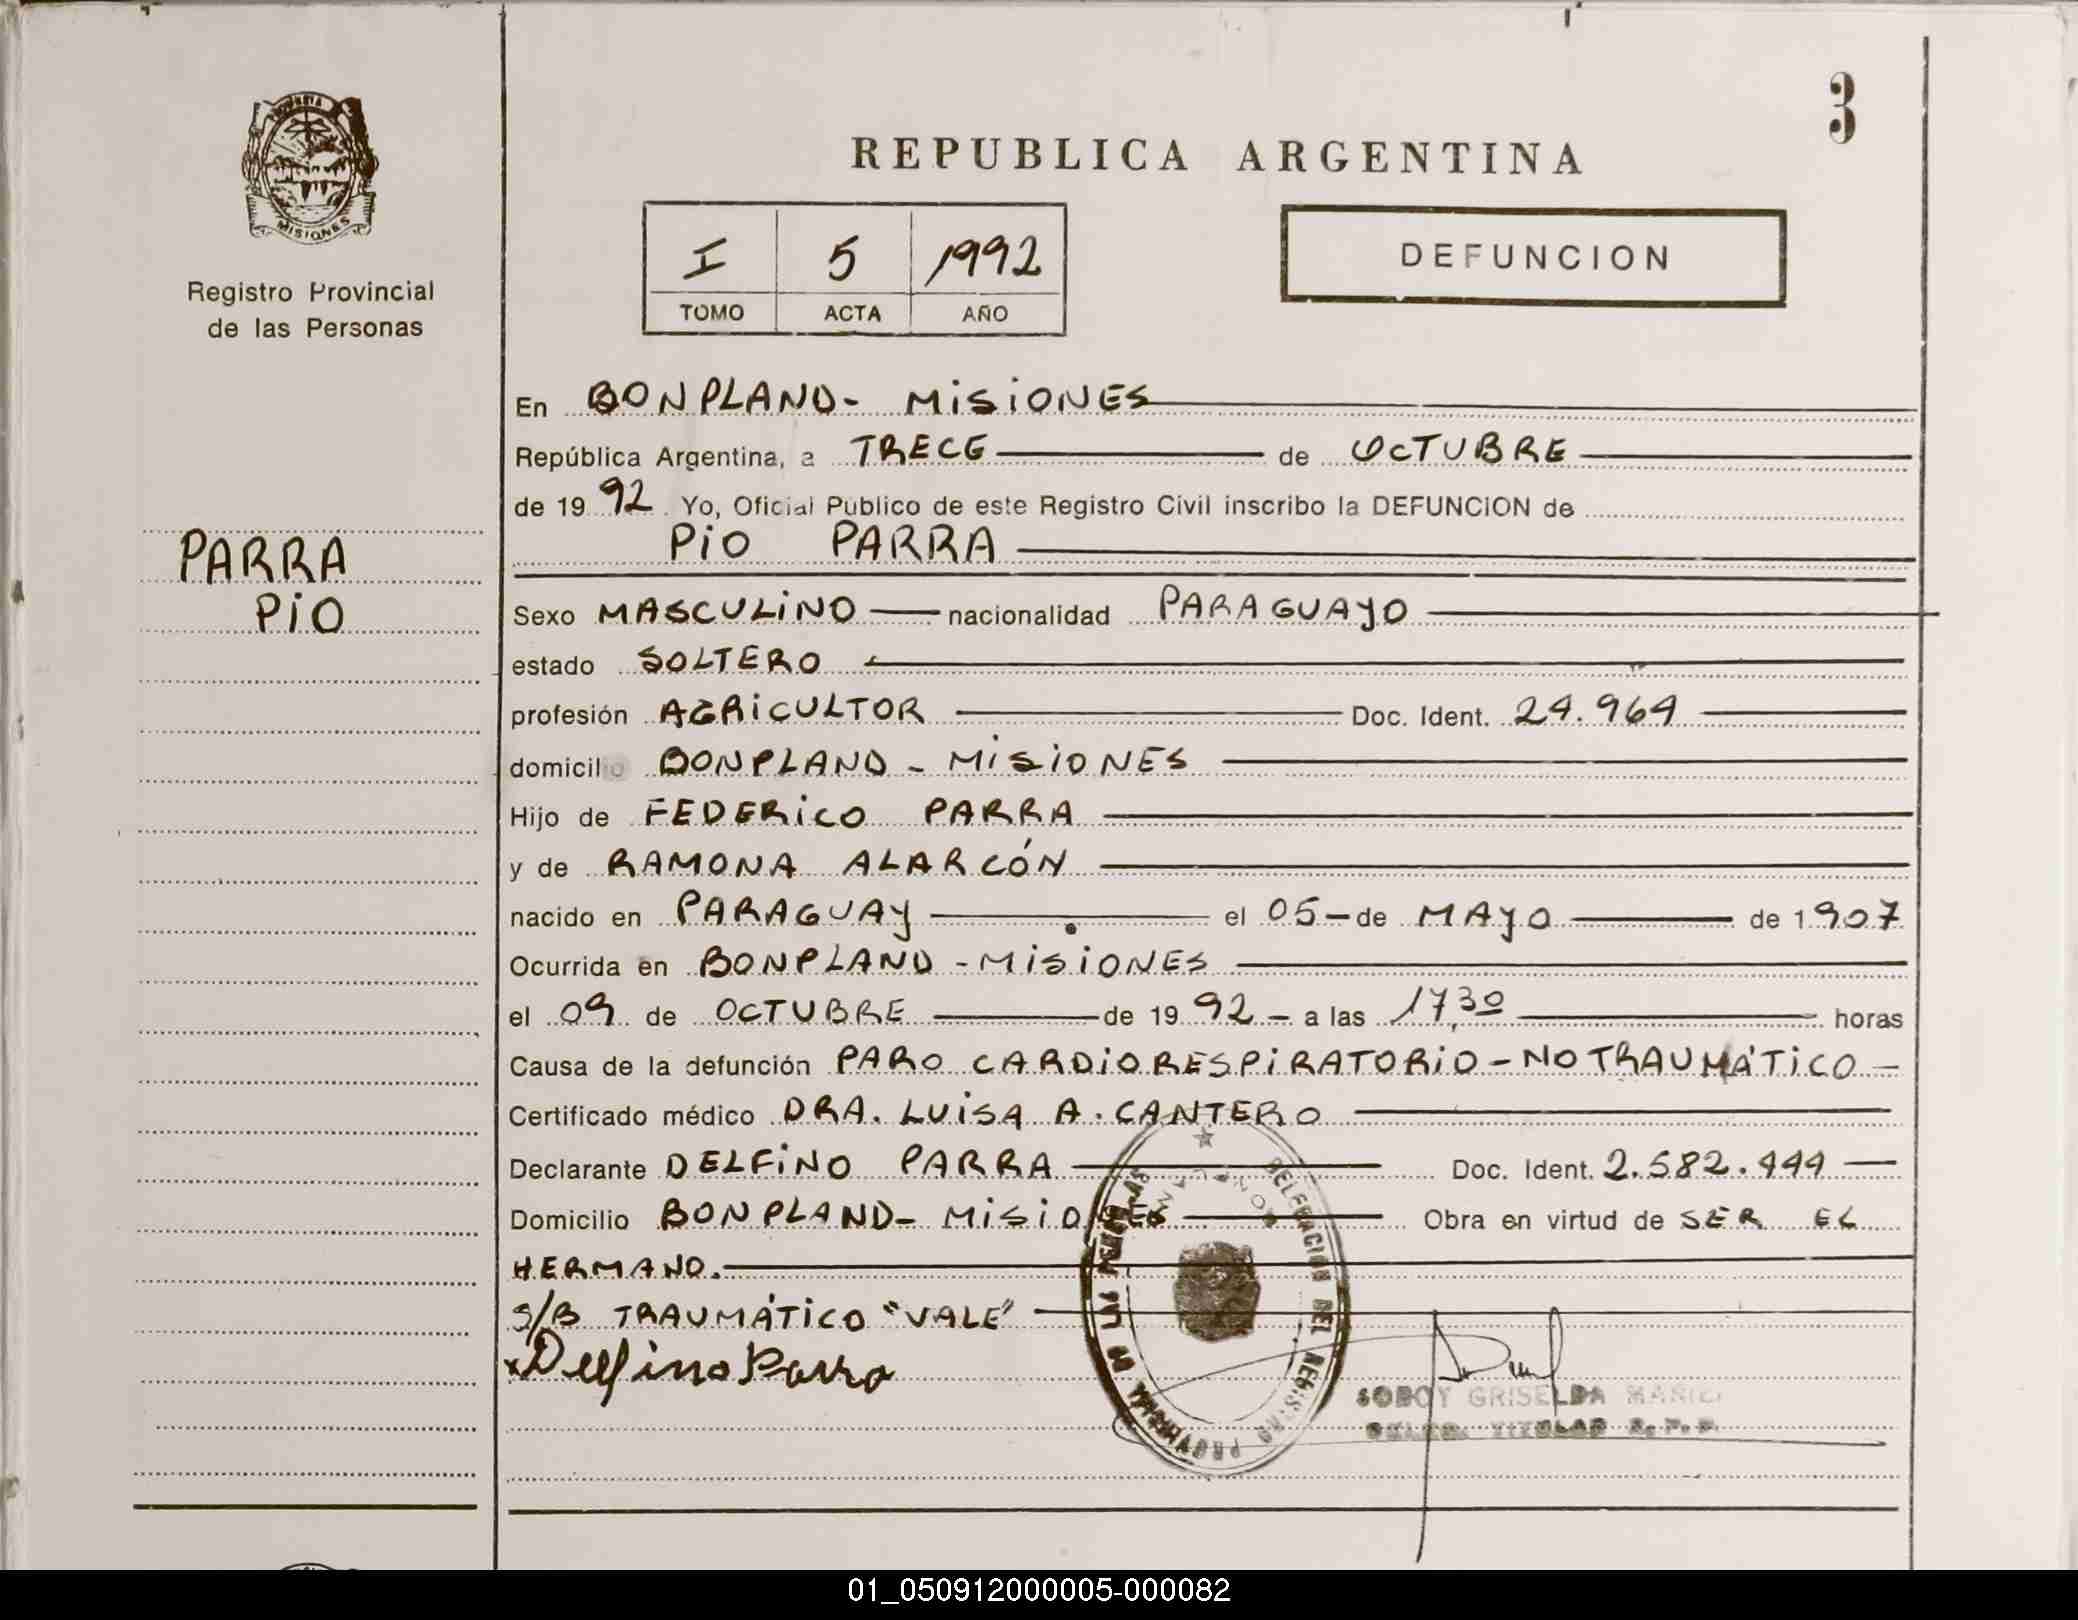 3
PROVINCIA
MISIONES
Registro Provincial
de las Personas
REPUBLICA ARGENTINA
I 5 1992
TOMO ACTA AÑO
DEFUNCION
En BONPLAND - MISIONES
República Argentina, a TRECE de OCTUBRE
de 1992 Yo, Oficial Publico de este Registro Civil inscribo la DEFUNCION de
PIO PARRA
PARRA
PIO
Sexo MASCULINO nacionalidad PARAGUAYO
estado SOLTERO
profesión AGRICULTOR Doc. Ident. 24.964
domicilio BONPLAND - MISIONES
Hijo de FEDERICO PARRA
y de RAMONA ALARCÓN
nacido en PARAGUAY el 05 - de MAYO de 1907
Ocurrida en BONPLAND - MISIONES
el 09 de OCTUBRE de 1992 - a las 17,30 horas
Causa de la defunción PARO CARDIORESPIRATORIO - NO TRAUMÁTICO -
Certificado médico DRA. LUISA A. CANTERO
Declarante DELFINO PARRA Doc. Ident. 2.582.444
Domicilio BONPLAND - MISIONES Obra en virtud de SER EL
HERMANO.
S/B TRAUMÁTICO "VALE"
x Delfino Parra
DELEGACION DEL REGISTRO PROVINCIAL DE LAS PERSONAS
SOBOY GRISELDA
TITULAR R. P. P.
01_050912000005-000082